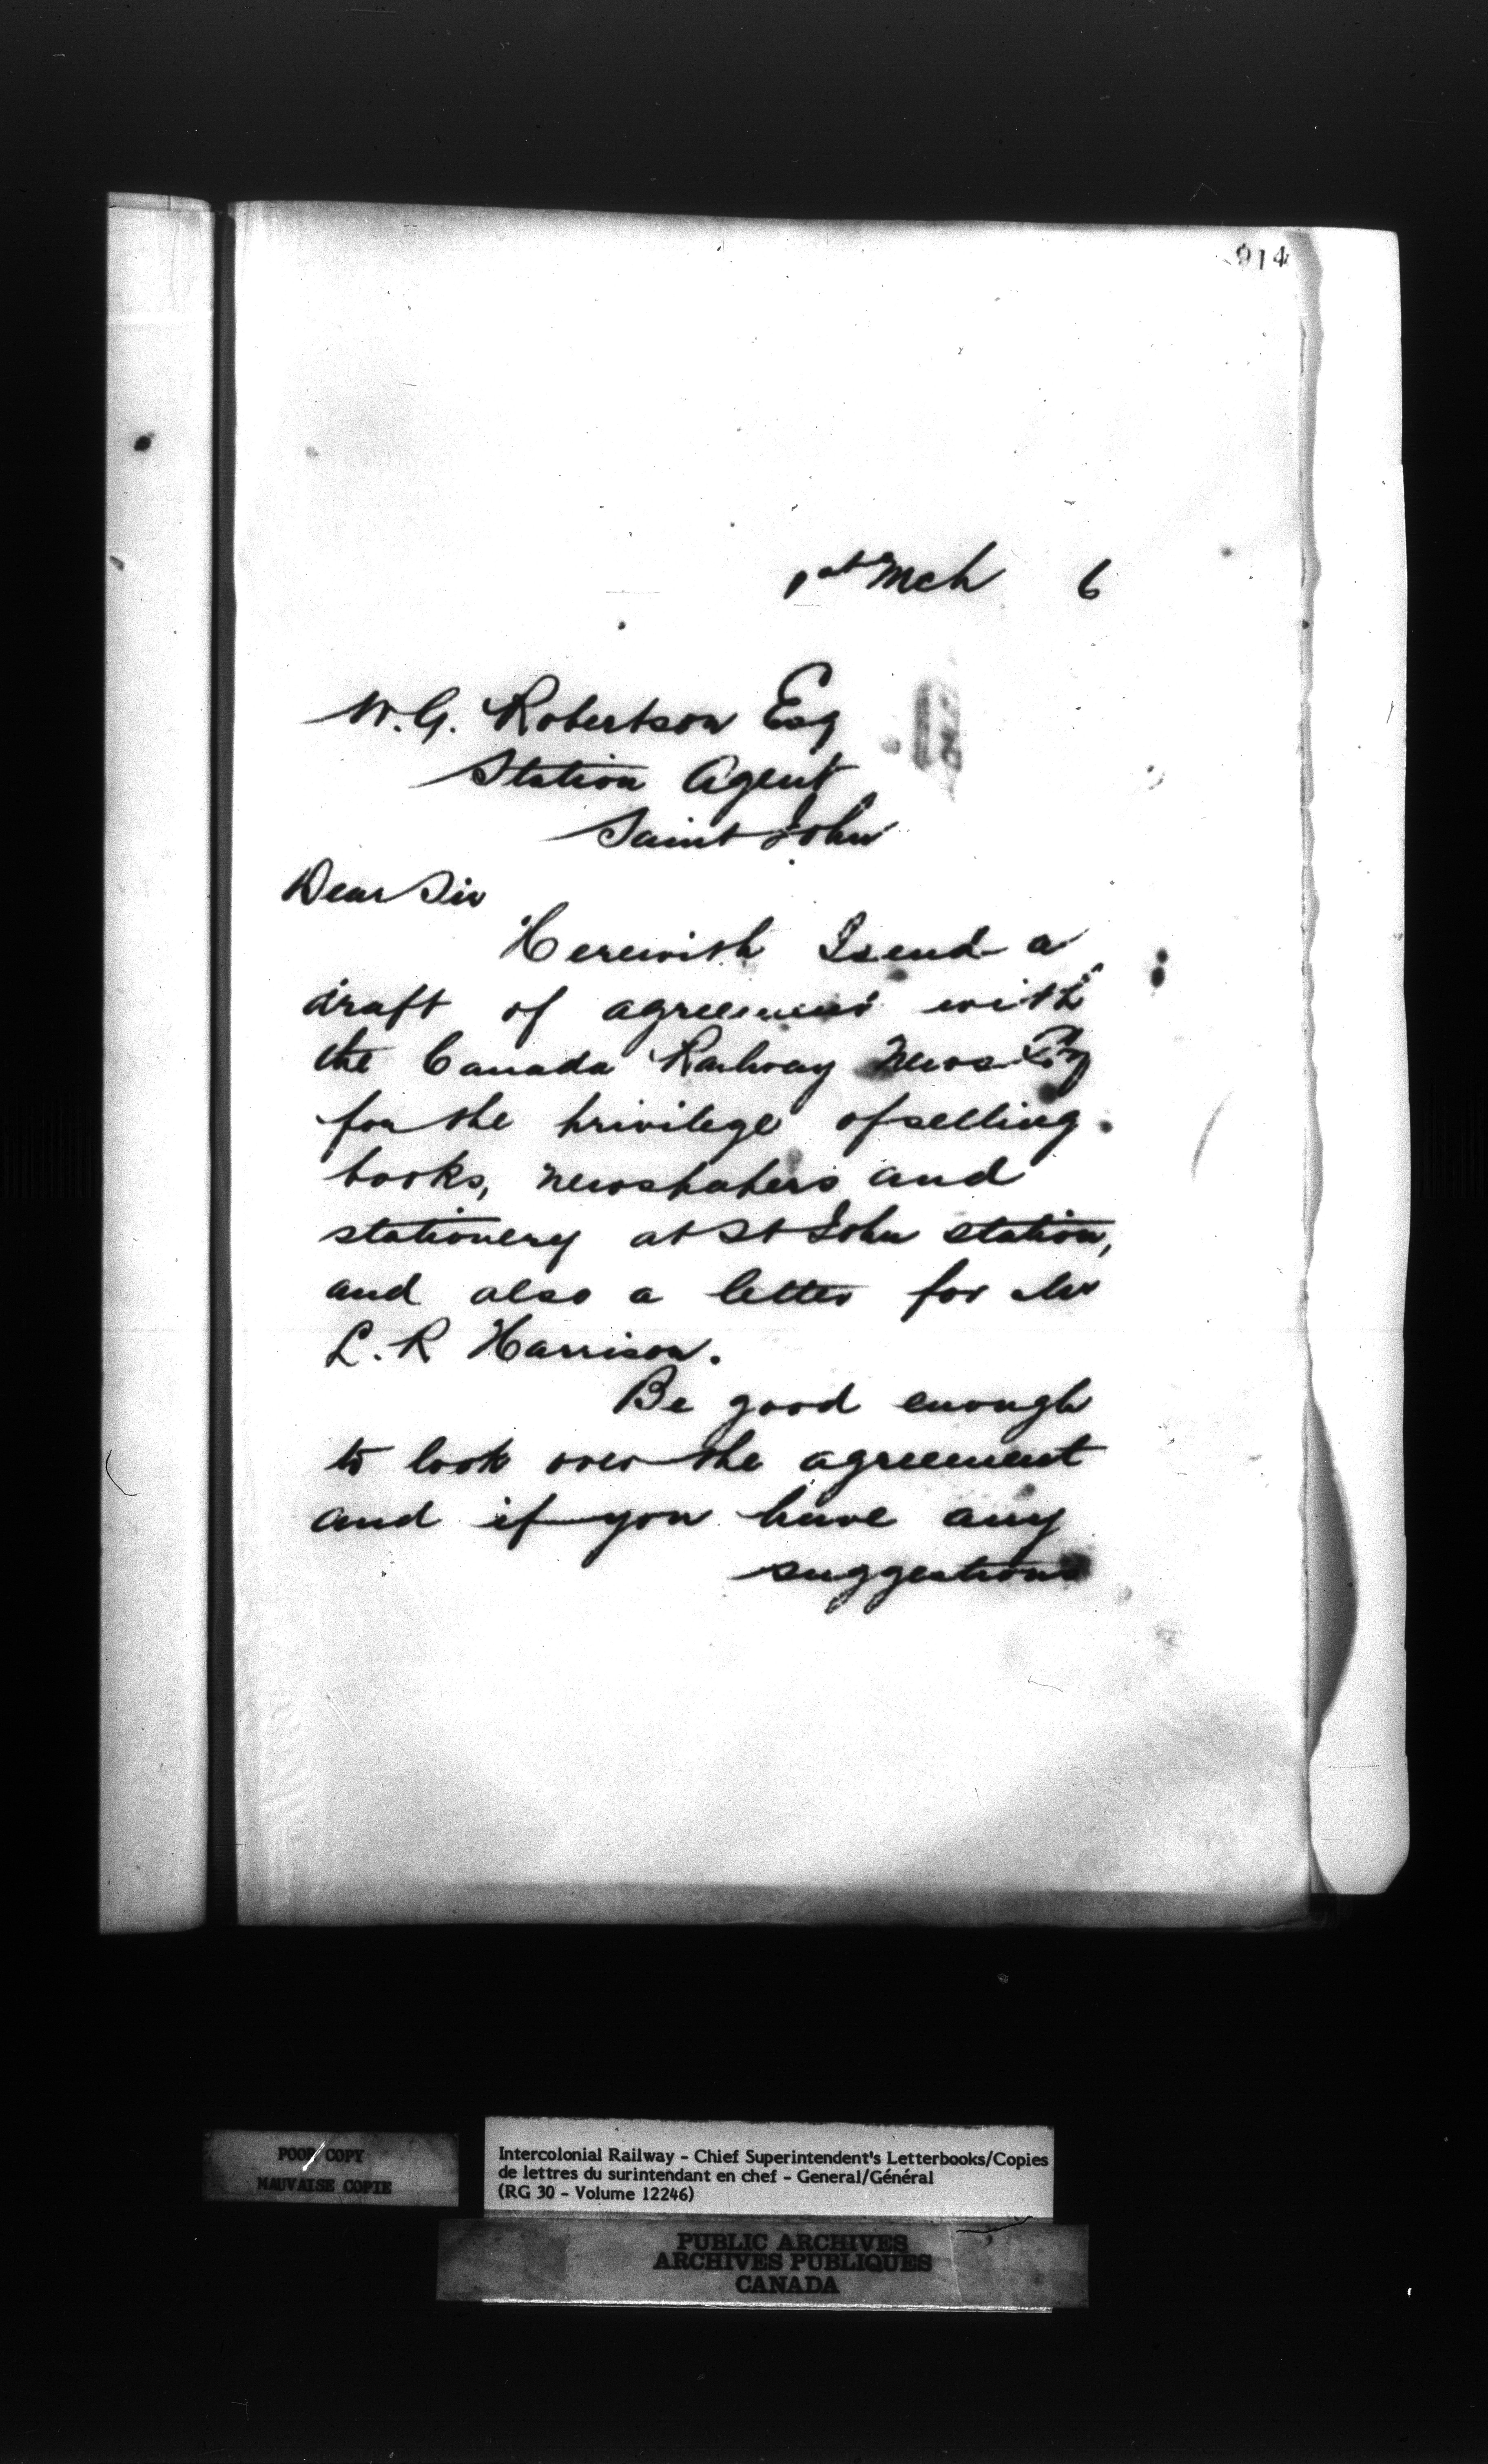 914
1st Mch 6
W. G. Robertson Esq
Station Agent
Saint John
Dear Sir
Herewith I send a
draft of agreement with
the Canada Railway News Coy
for the privilege of selling
books, newspapers and
stationery at St John station,
and also a letter for Mr
L. R Harrison.
Be good enough
to look over the agreement
and if you have any
suggestions
POOR COPY
MAUVAISE COPIE
Intercolonial Railway - Chief Superintendent's Letterbooks/Copies
de lettres du surintendant en chef - General/Général
(RG 30 - Volume 12246)
PUBLIC ARCHIVES
ARCHIVES PUBLIQUES
CANADA